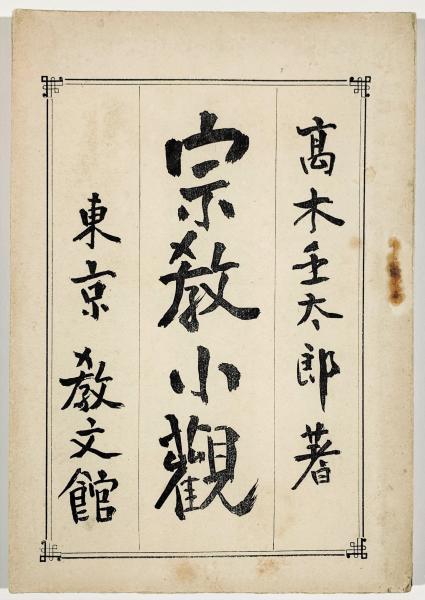 高木壬太郎著
宗教小觀
東京 教文館